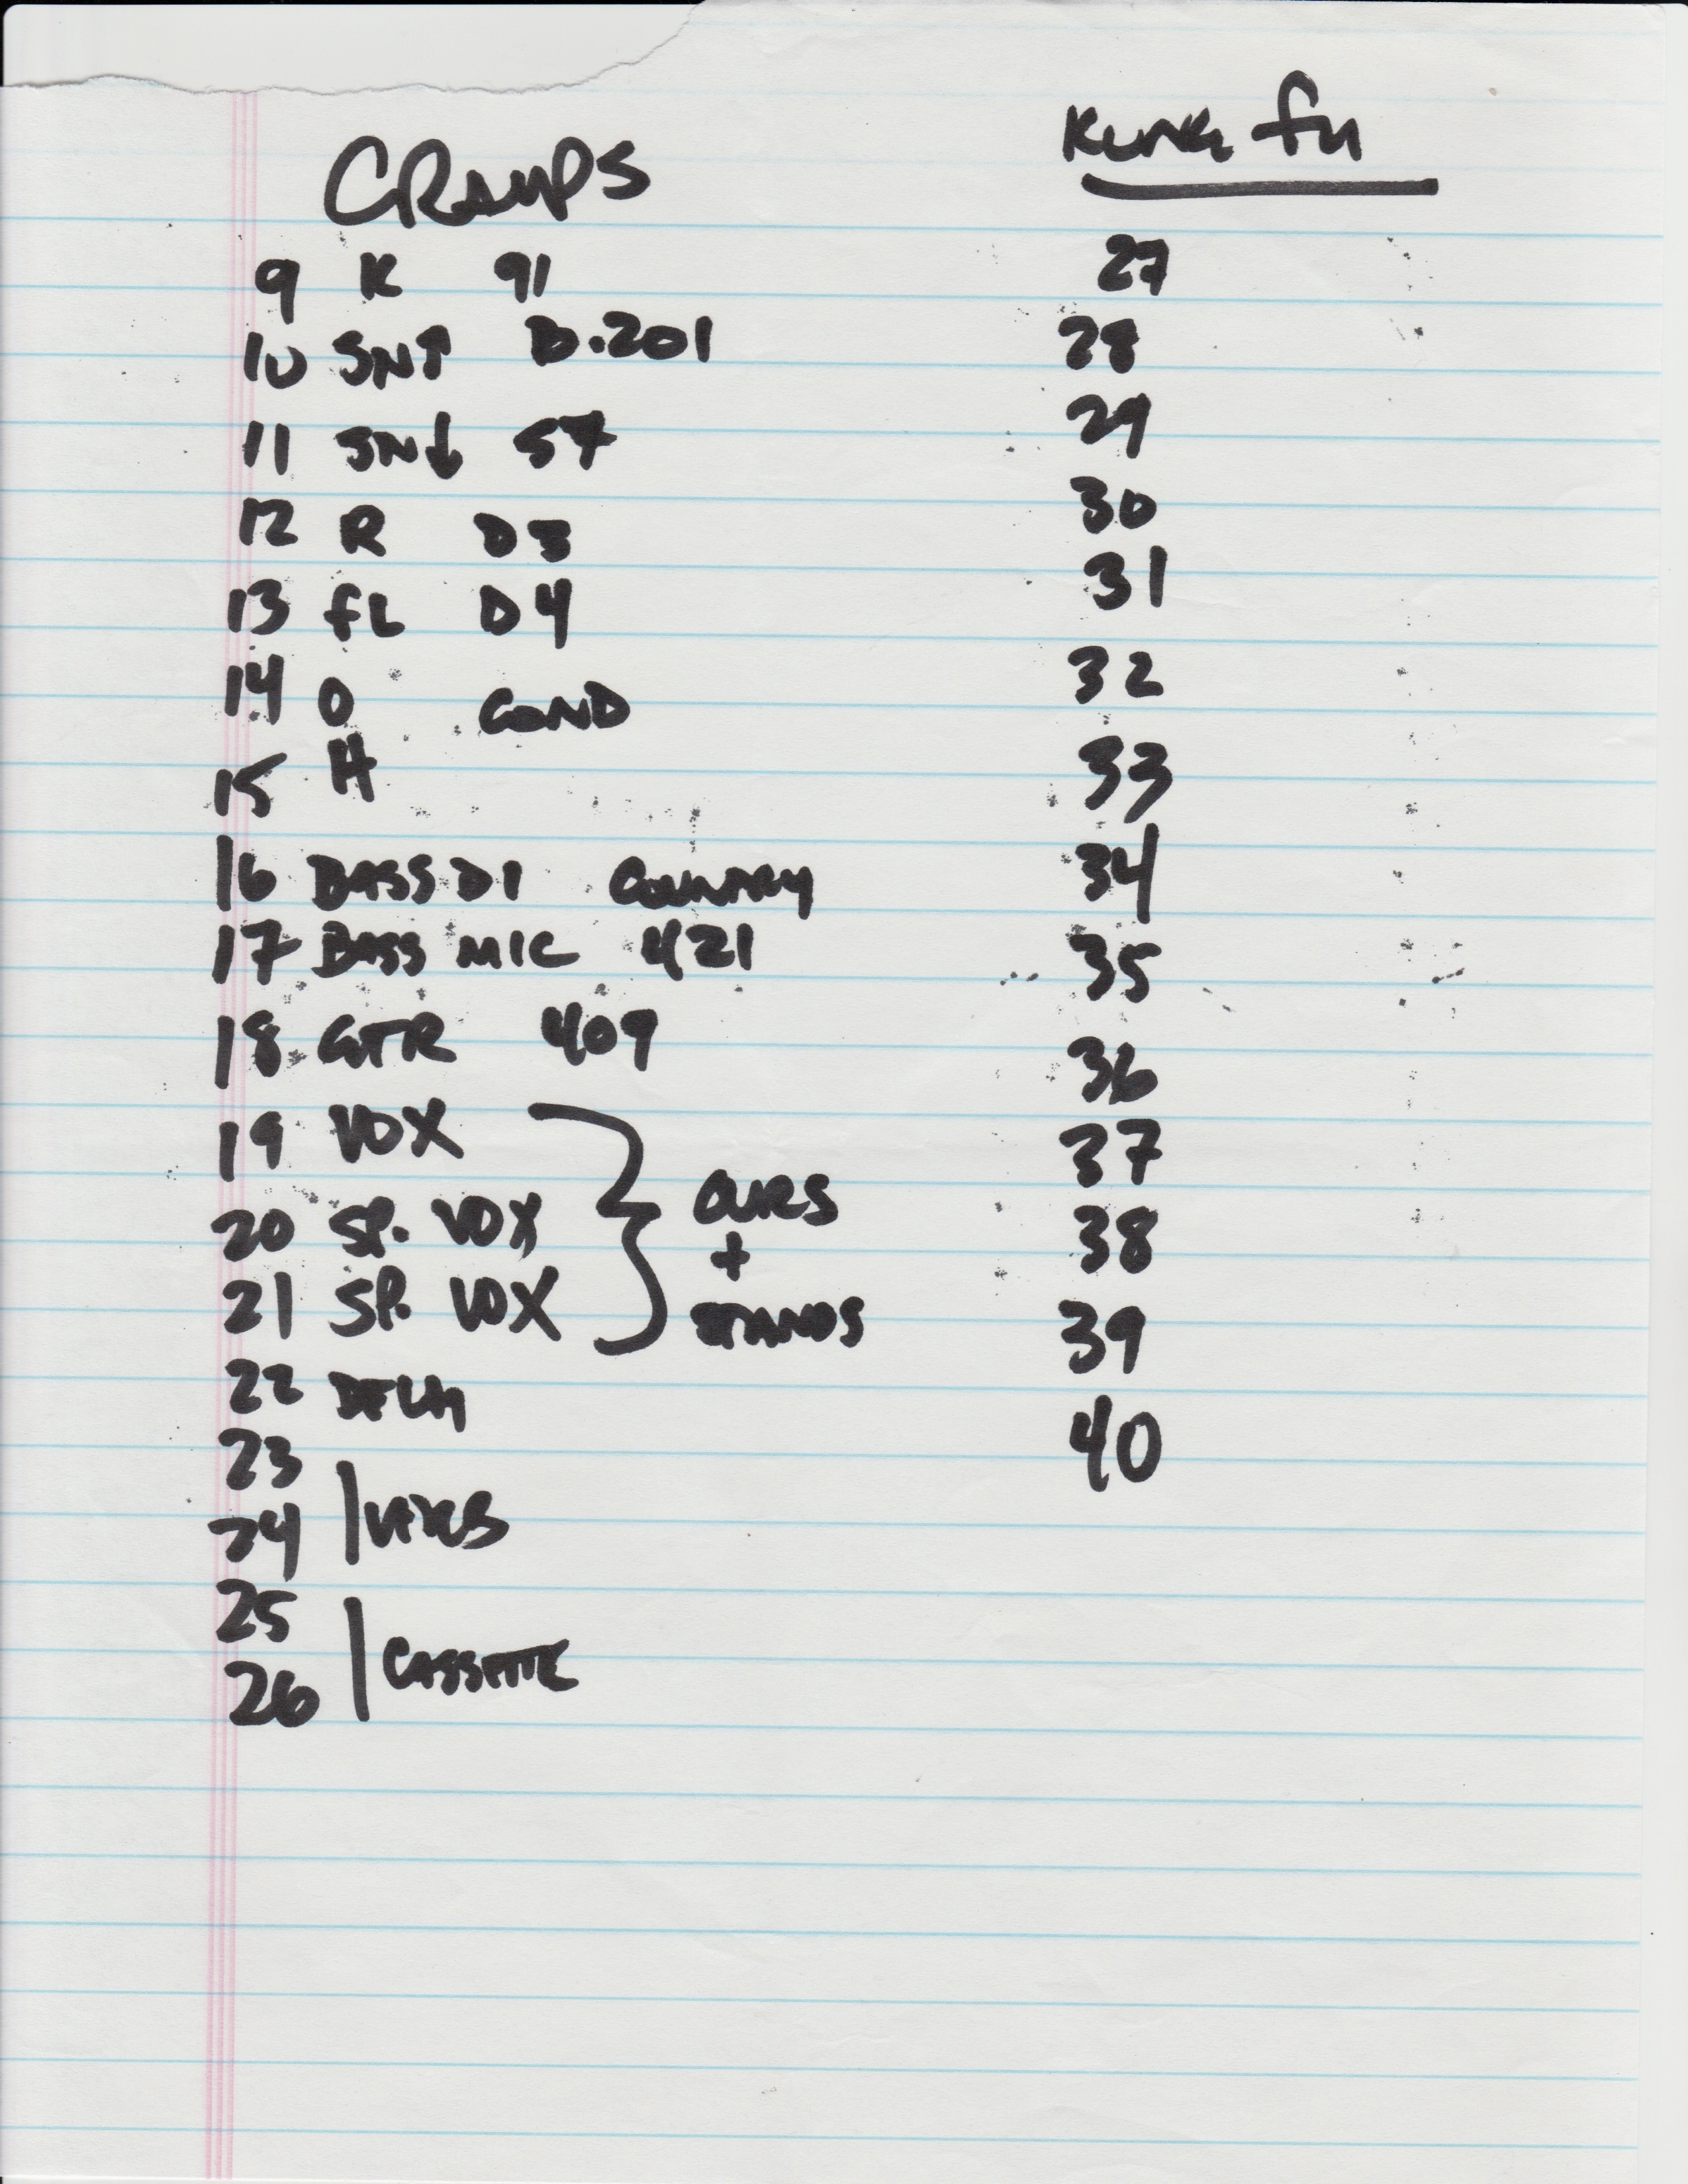 CRAMPS
9 K 91
10 SN↑ D.201
11 SN↓ 57
12 R D3
13 fL D4
14 O COND
15 H
16 BASS DI COUNTRY
17 BASS MIC 421
18 GTR 409
19 VOX
20 SP. VOX
21 SP. VOX
OURS
+
STANDS
22 DELAY
23
24
25
26 CASSETTE
Kung fu
27
28
29
30
31
32
33
34
35
36
37
38
39
40